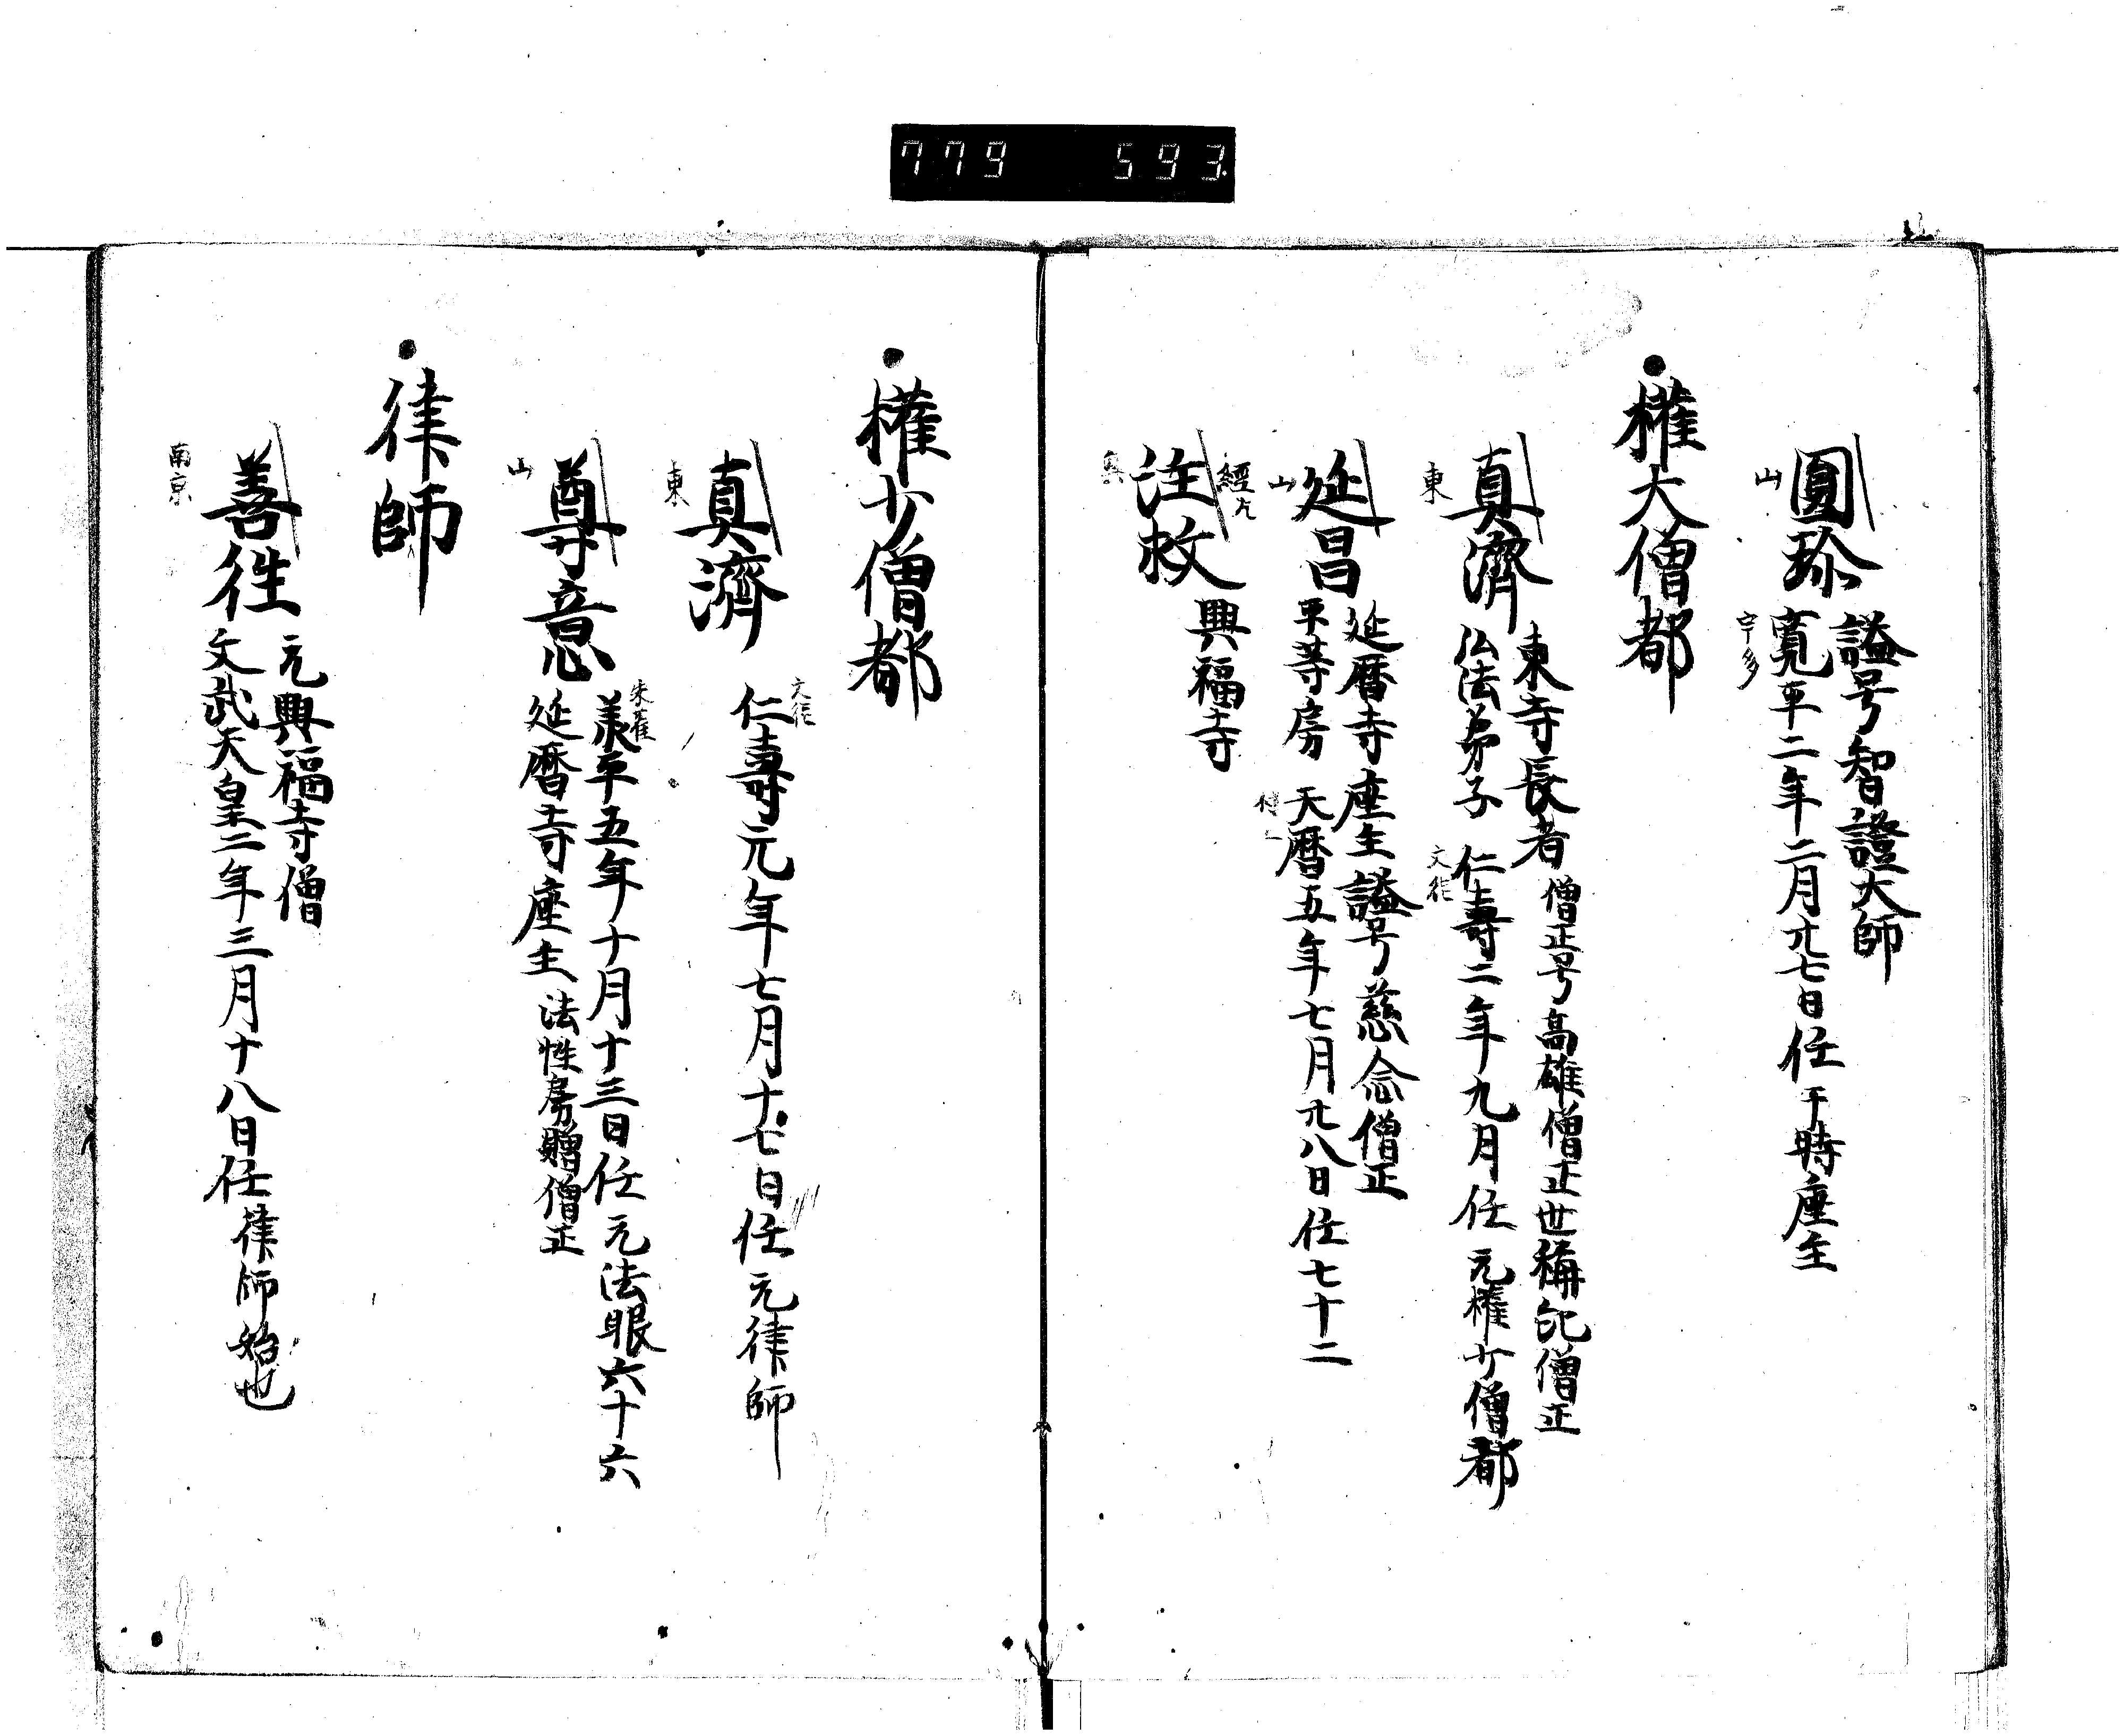 779 593
謚号智證大師
圓珎
山
寛平二年二月廿七日任 于時座主
宇多
権大僧都
東寺長者 僧正号高雄僧正世稱紀僧正
真濟
東
仏法弟子 仁壽二年九月任 元権少僧都
文徳
延暦寺座主謚号慈念僧正
延昌
山
平等房 天暦五年七月廿八日任七十二
興福寺
注救
権少僧都
真濟
東
文徳
仁壽元年七月十七日任 元律師
尊意
山
朱雀
承平五年十月十三日任 元法眼六十六
延暦寺座主 法性房贈僧正
律師
元興福寺僧
善往
南京
文武天皇二年三月十八日任 律師始也